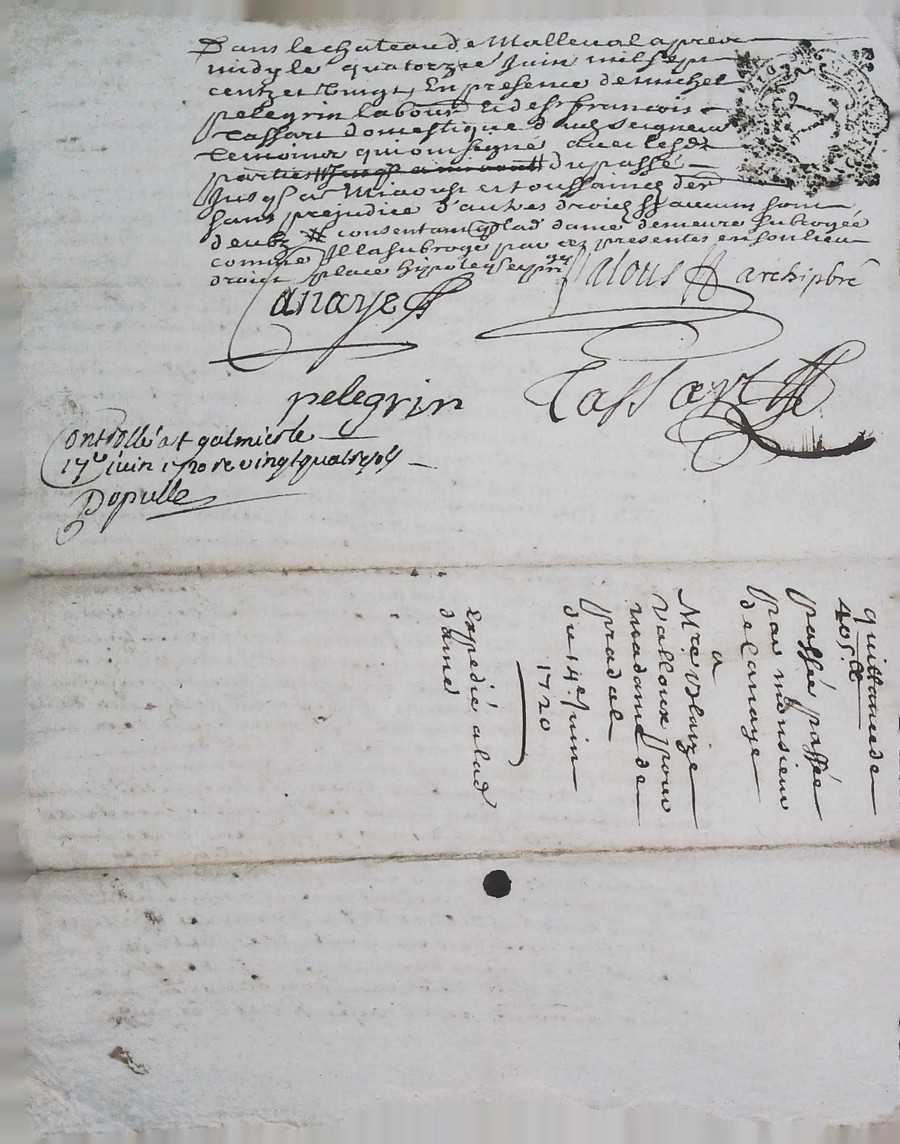 Dans le chateau de Malleval apres
midy le quatorze Juin mil sept
centz et Vingt, En presence de michel
pelegrin labour & de s francois
Tassart domestique d seigneur
temoins qui ont signé avec lesd
parties du passé
Jusq a et toussainct der
sans prejudice d'autres droicts
deubz # consentant q lad dame demeure subrogée
comme Il la subroge par ces presentes en son lieu
droict place hipoteq
Valous archiprê
Canaye
Tassart
pelegrin
Controllé a St galmier le
17e juin 1720 re vingt quatre sols
Dopulle
quittance de
405 ll
passée passée
par monsieur
de Canaye
a
Mre Blaize
Valloux pour
madame de
pradal
du 14e Juin
1720
Expedié a lad
dame